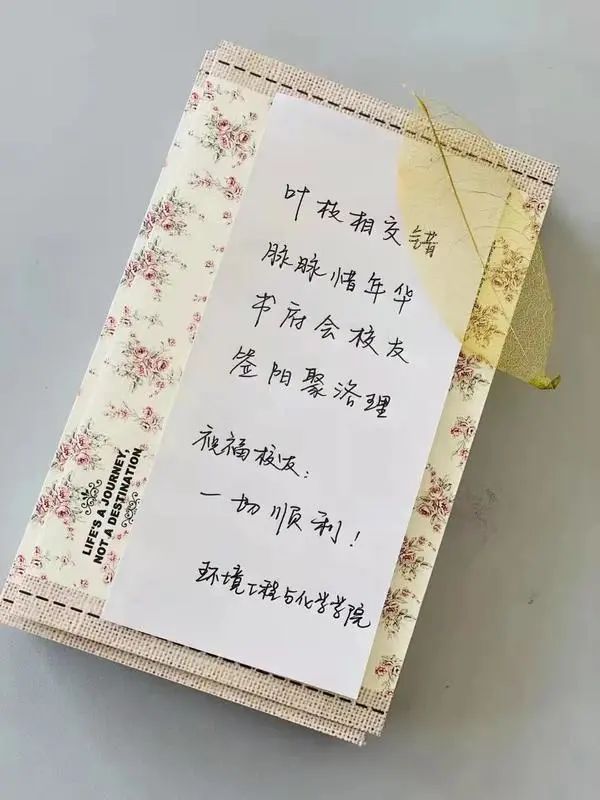 叶枝相交错
脉脉惜年华
书府会校友
签阳聚洛理
祝福校友：
一切顺利！
环境工程与化学学院
LIFE'S A JOURNEY,
NOT A DESTINATION